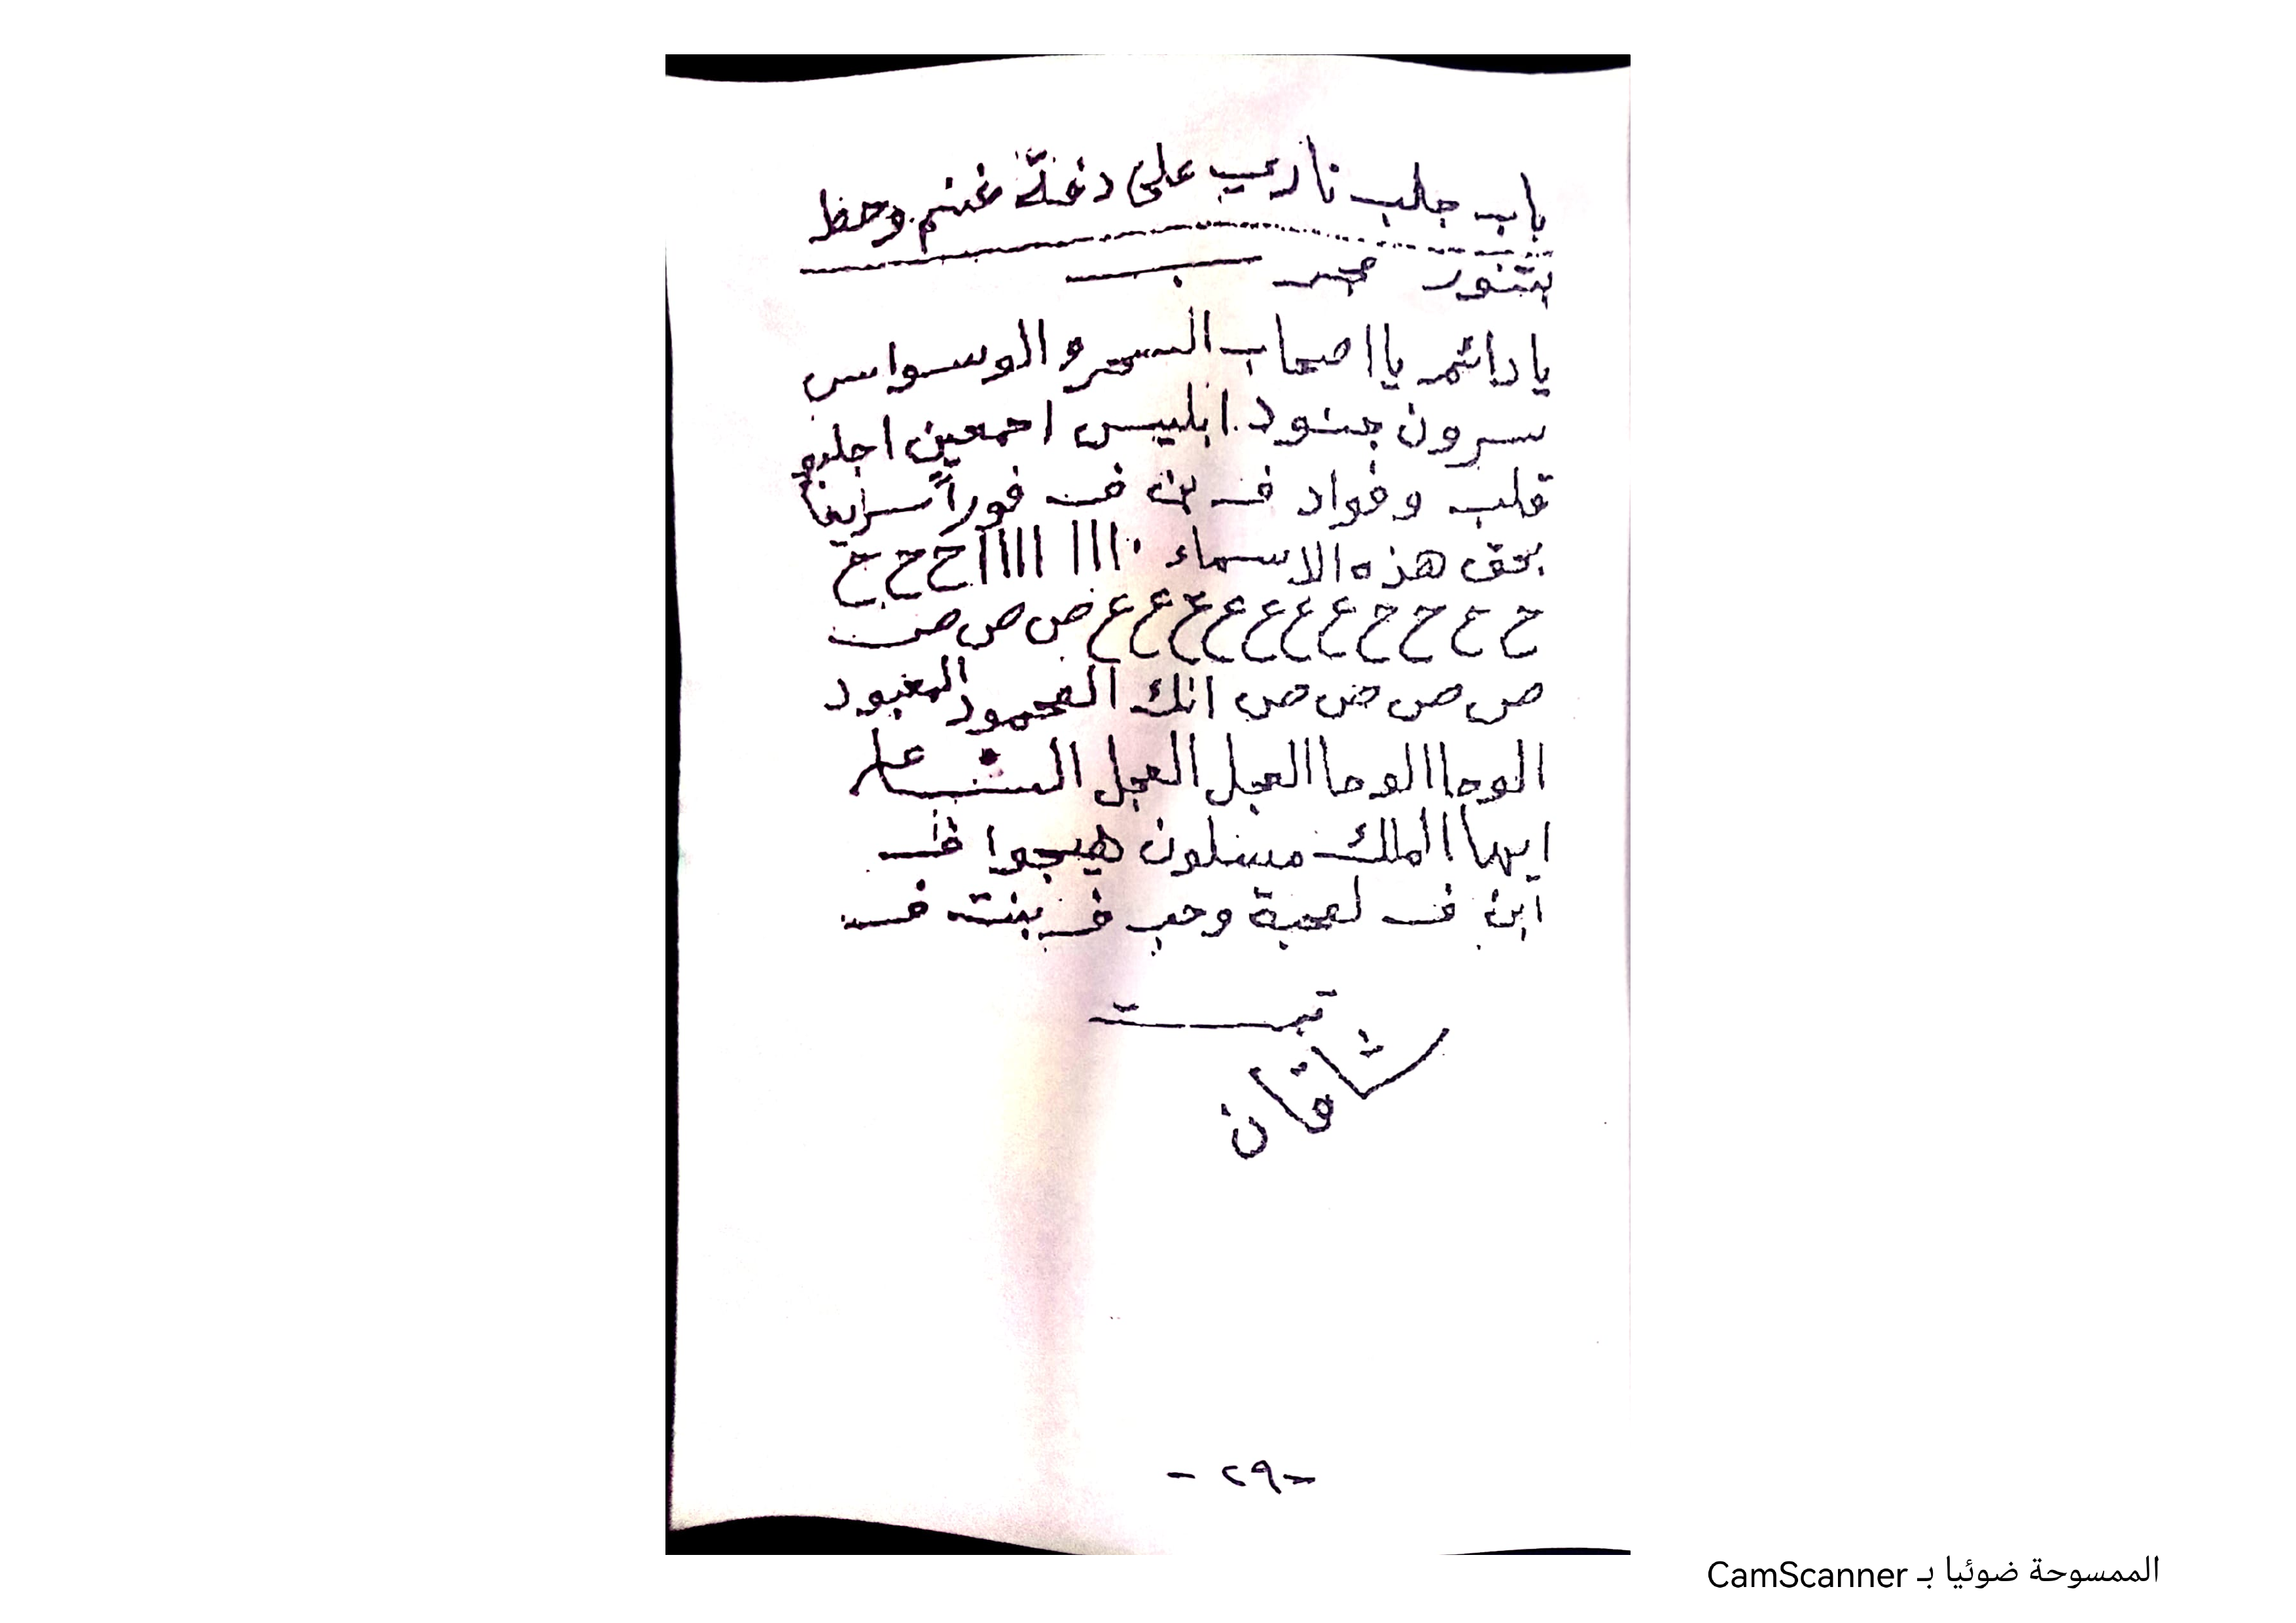 باب جلب ناري على دفة غنم وحط
بتنور مجرب
يا دائم يا اصحاب السحر و الوسواس
سرون جنود ابليس اجمعين اجلبو
قلب و فواد ف بن ف فوراً سريعاً
بحق هذه الاسماء ااا ااااا ح ح ح
ح ح ح ح ح ع ع ع ع ع ع ع ص ص ص ص
ص ص ص ص انك المحمود المعبود
الوحا الوحا العجل العجل
ايها الملك هيجوا ف
ابن ف لمحبة وحب ف بنت ف
تمت
شاقان
- ٢٩ -
الممسوحة ضوئيا بـ CamScanner